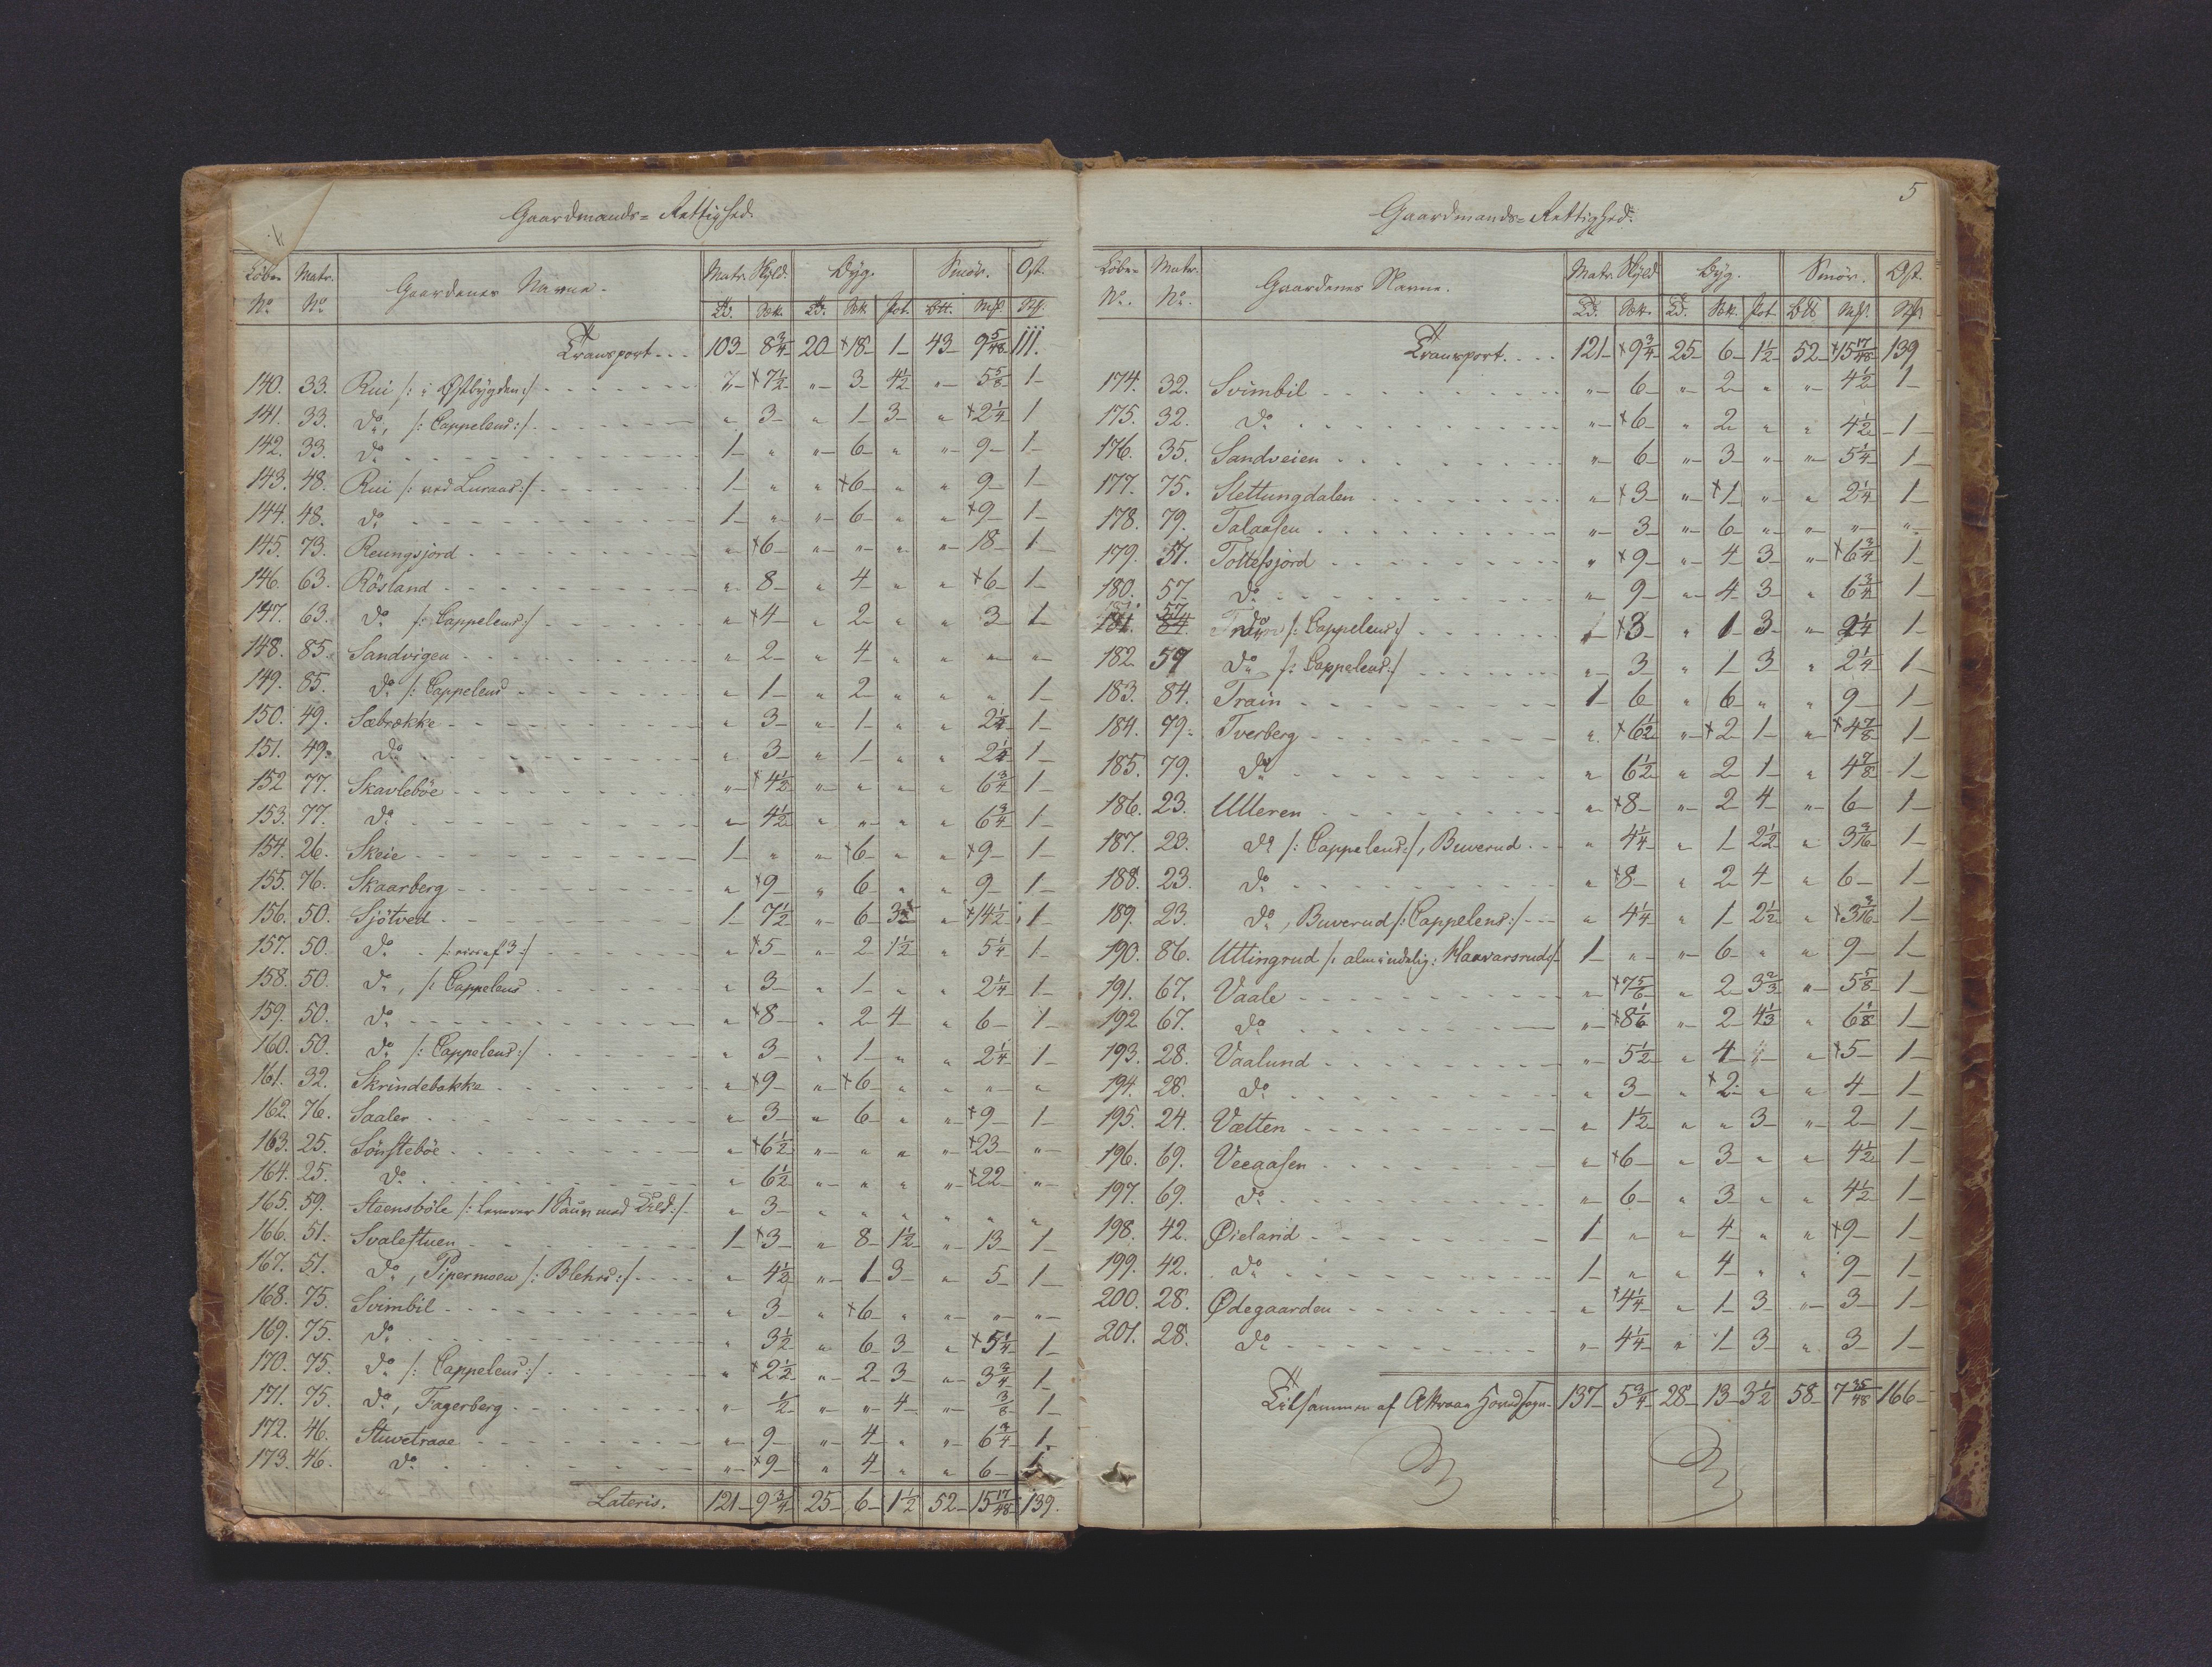 Gaardmands=Rettighed.
Løbe Matr. Gaardenes Navne. Matr. Skyld. Byg. Smør. Ost.
No No
Transport 103 8 3/4 20 +18 1 43 9 5/48 111.
140. 33. Rui /: i Østbygden :/ " +7 1/2 " 3 4 1/2 " 5 5/8 1
141. 33. do, /: Cappelens :/ " 3 " 1 3 " +2 1/4 1
142. 33. do 1 " " 6 " " 9 1
143. 48. Rui /: ved Luraas :/ 1 " " +6 " " 9 1
144. 48. do 1 " " 6 " " +9 1
145. 73. Reungsjord " +6 " " " " 18 1
146. 63. Røsland " 8 " 4 " " +6 1
147. 63. do /: Cappelens :/ " +4 " 2 " " 3 1
148. 85. Sandvigen " 2 " 4 " " " "
149. 85. do /: Cappelens " 1 " 2 " " " 1
150. 49. Sæbrække " 3 " 1 " " 2 1/4 1
151. 49. do " 3 " 1 " " 2 1/4 1
152 77. Skavlebøe " +4 1/2 " " " " 6 3/4 1
153. 77. do " 4 1/2 " " " " 6 3/4 1
154. 26. Skeie 1 " " +6 " " +9 1
155. 76. Skaarberg " +9 " 6 " " 9 1
156. 50. Sjøtved 1 7 1/2 " 6 3 " +14 1/2 1
157. 50. do " +5 " 2 1 1/2 " 5 1/4 1
158. 50. do, /: Cappelens " 3 " 1 " " 2 1/4 1
159. 50. do " +8 " 2 4 " 6 1
160. 50. do /: Cappelens :/ " 3 " 1 " " 2 1/4 1
161. 32. Skrindebakke " +9 " +6 " " " "
162. 76. Saaler " 3 " 6 " " +9 1
163. 25. Sønstebøe " +6 1/2 " " " " +23 "
164. 25. do " 6 1/2 " " " " +22 "
165. 59. Steensbøle /: leverer 1 Caun med Sild :/ " 3 " " " " " "
166. 51. Svalestuen 1 +3 " 8 1 1/2 " 13 1
167. 51. do, Pipermoen /: Blehrs :/ " 4 1/2 " 1 3 " 5 1
168. 75. Svimbil " 3 " +6 " " " "
169. 75. do " 3 1/2 " 6 3 " +5 1/4 1
170. 75. do /: Cappelens :/ " +2 1/2 " 2 3 " 3 3/4 1
171. 75. do, Fagerberg " 1/2 " " 4 " 3/8 1
172. 46. Stuvetraae " 9 " 4 " " 6 3/4 1
173. 46. do " +9 " 4 " " 6 1
Lateris. 121 9 3/4 25 6 1 1/2 52 15 17/48 139.
5
Gaardmands=Rettighed.
Løbe Matr. Gaardenes Navne. Matr. Skyld Byg. Smør. Ost.
No. No.
Transport. 121 +9 3/4 25 6 1 1/2 52 +15 17/48 139
174. 32. Svimbil " 6 " 2 " " 4 1/2 1
175. 32. do " +6 " 2 " " 4 1/2 1
176. 35. Sandveien " 6 " 3 " " 5 1/4 1
177. 75. Slettungdalen " +3 " +1 " " 2 1/4 1
178. 79. Talaasen " 3 " 6 " " " "
179. 57. Tottefsjord " +9 " 4 3 " +6 3/4 1
180. 57. do " 9 " 4 3 " 6 3/4 1
181. 57 do /: Cappelens :/ " +3 " 1 3 " 2 1/4 1
182 57 do /: Cappelens :/ " 3 " 1 3 " 2 1/4 1
183. 84. Train 1 6 " 6 " " 9 1
184. 79. Tverberg " +6 1/2 " +2 1 " +4 7/8 1
185. 79. do " 6 1/2 " 2 1 " 4 7/8 1
186. 23. Ulleren " +8 " 2 4 " 6 1
187. 23. do /: Cappelens :/, Buverud " 4 1/4 " 1 2 1/2 " 3 3/16 1
188. 23. do " +8 " 2 4 " 6 1
189. 23. do, Buverud /: Cappelens :/ " 4 1/4 " 1 2 1/2 " +3 3/16 1
190. 86. Uttingrud /: almindelig: Haavarsrud :/ 1 " " 6 " " 9 1
191. 67. Vaale " +7 5/6 " 2 3 2/3 " 5 5/8 1
192 67. do " +8 1/6 " 2 4 1/3 " 6 1/8 1
193. 28. Vaalund " 5 1/2 " 4 " " +5 1
194. 28. do " 3 " +2 " " 4 1
195. 24. Vætten " 1 1/2 " " 3 " 2 1
196. 69. Veeaasen " +6 " 3 " " 4 1/2 1
197. 69. do " 6 " 3 " " 4 1/2 1
198. 42. Øieland 1 " " 4 " " +9 1
199. 42. do 1 " " 4 " " 9 1
200. 28. Ødegaarden " +4 1/4 " 1 3 " 3 1
201. 28. do " 4 1/4 " 1 3 " 3 1
Tilsammen af Attraae Hovedsogn 137 5 3/4 28 13 3 1/2 58 7 35/48 166